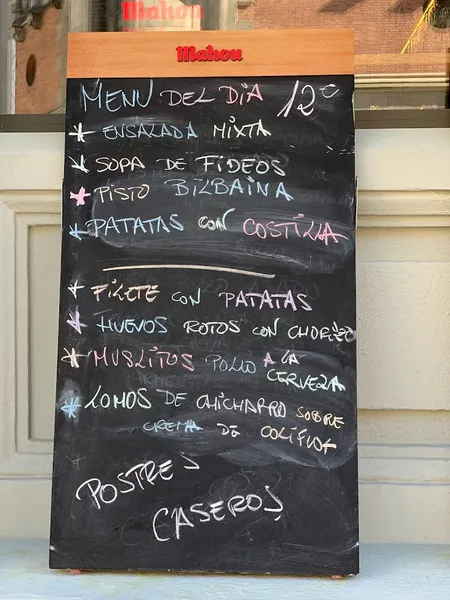 Mahou
Mahou
MENU DEL DIA 12€
* ENSALADA MIXTA
* SOPA DE FIDEOS
* PISTO BILBAINA
* PATATAS CON COSTILLA
* FILETE CON PATATAS
* HUEVOS ROTOS CON CHORIZO
* MUSLITOS POLLO A LA
CERVEZA
* LOMOS DE CHICHARRO SOBRE
CREMA DE COLIFLOR
POSTRES
CASEROS